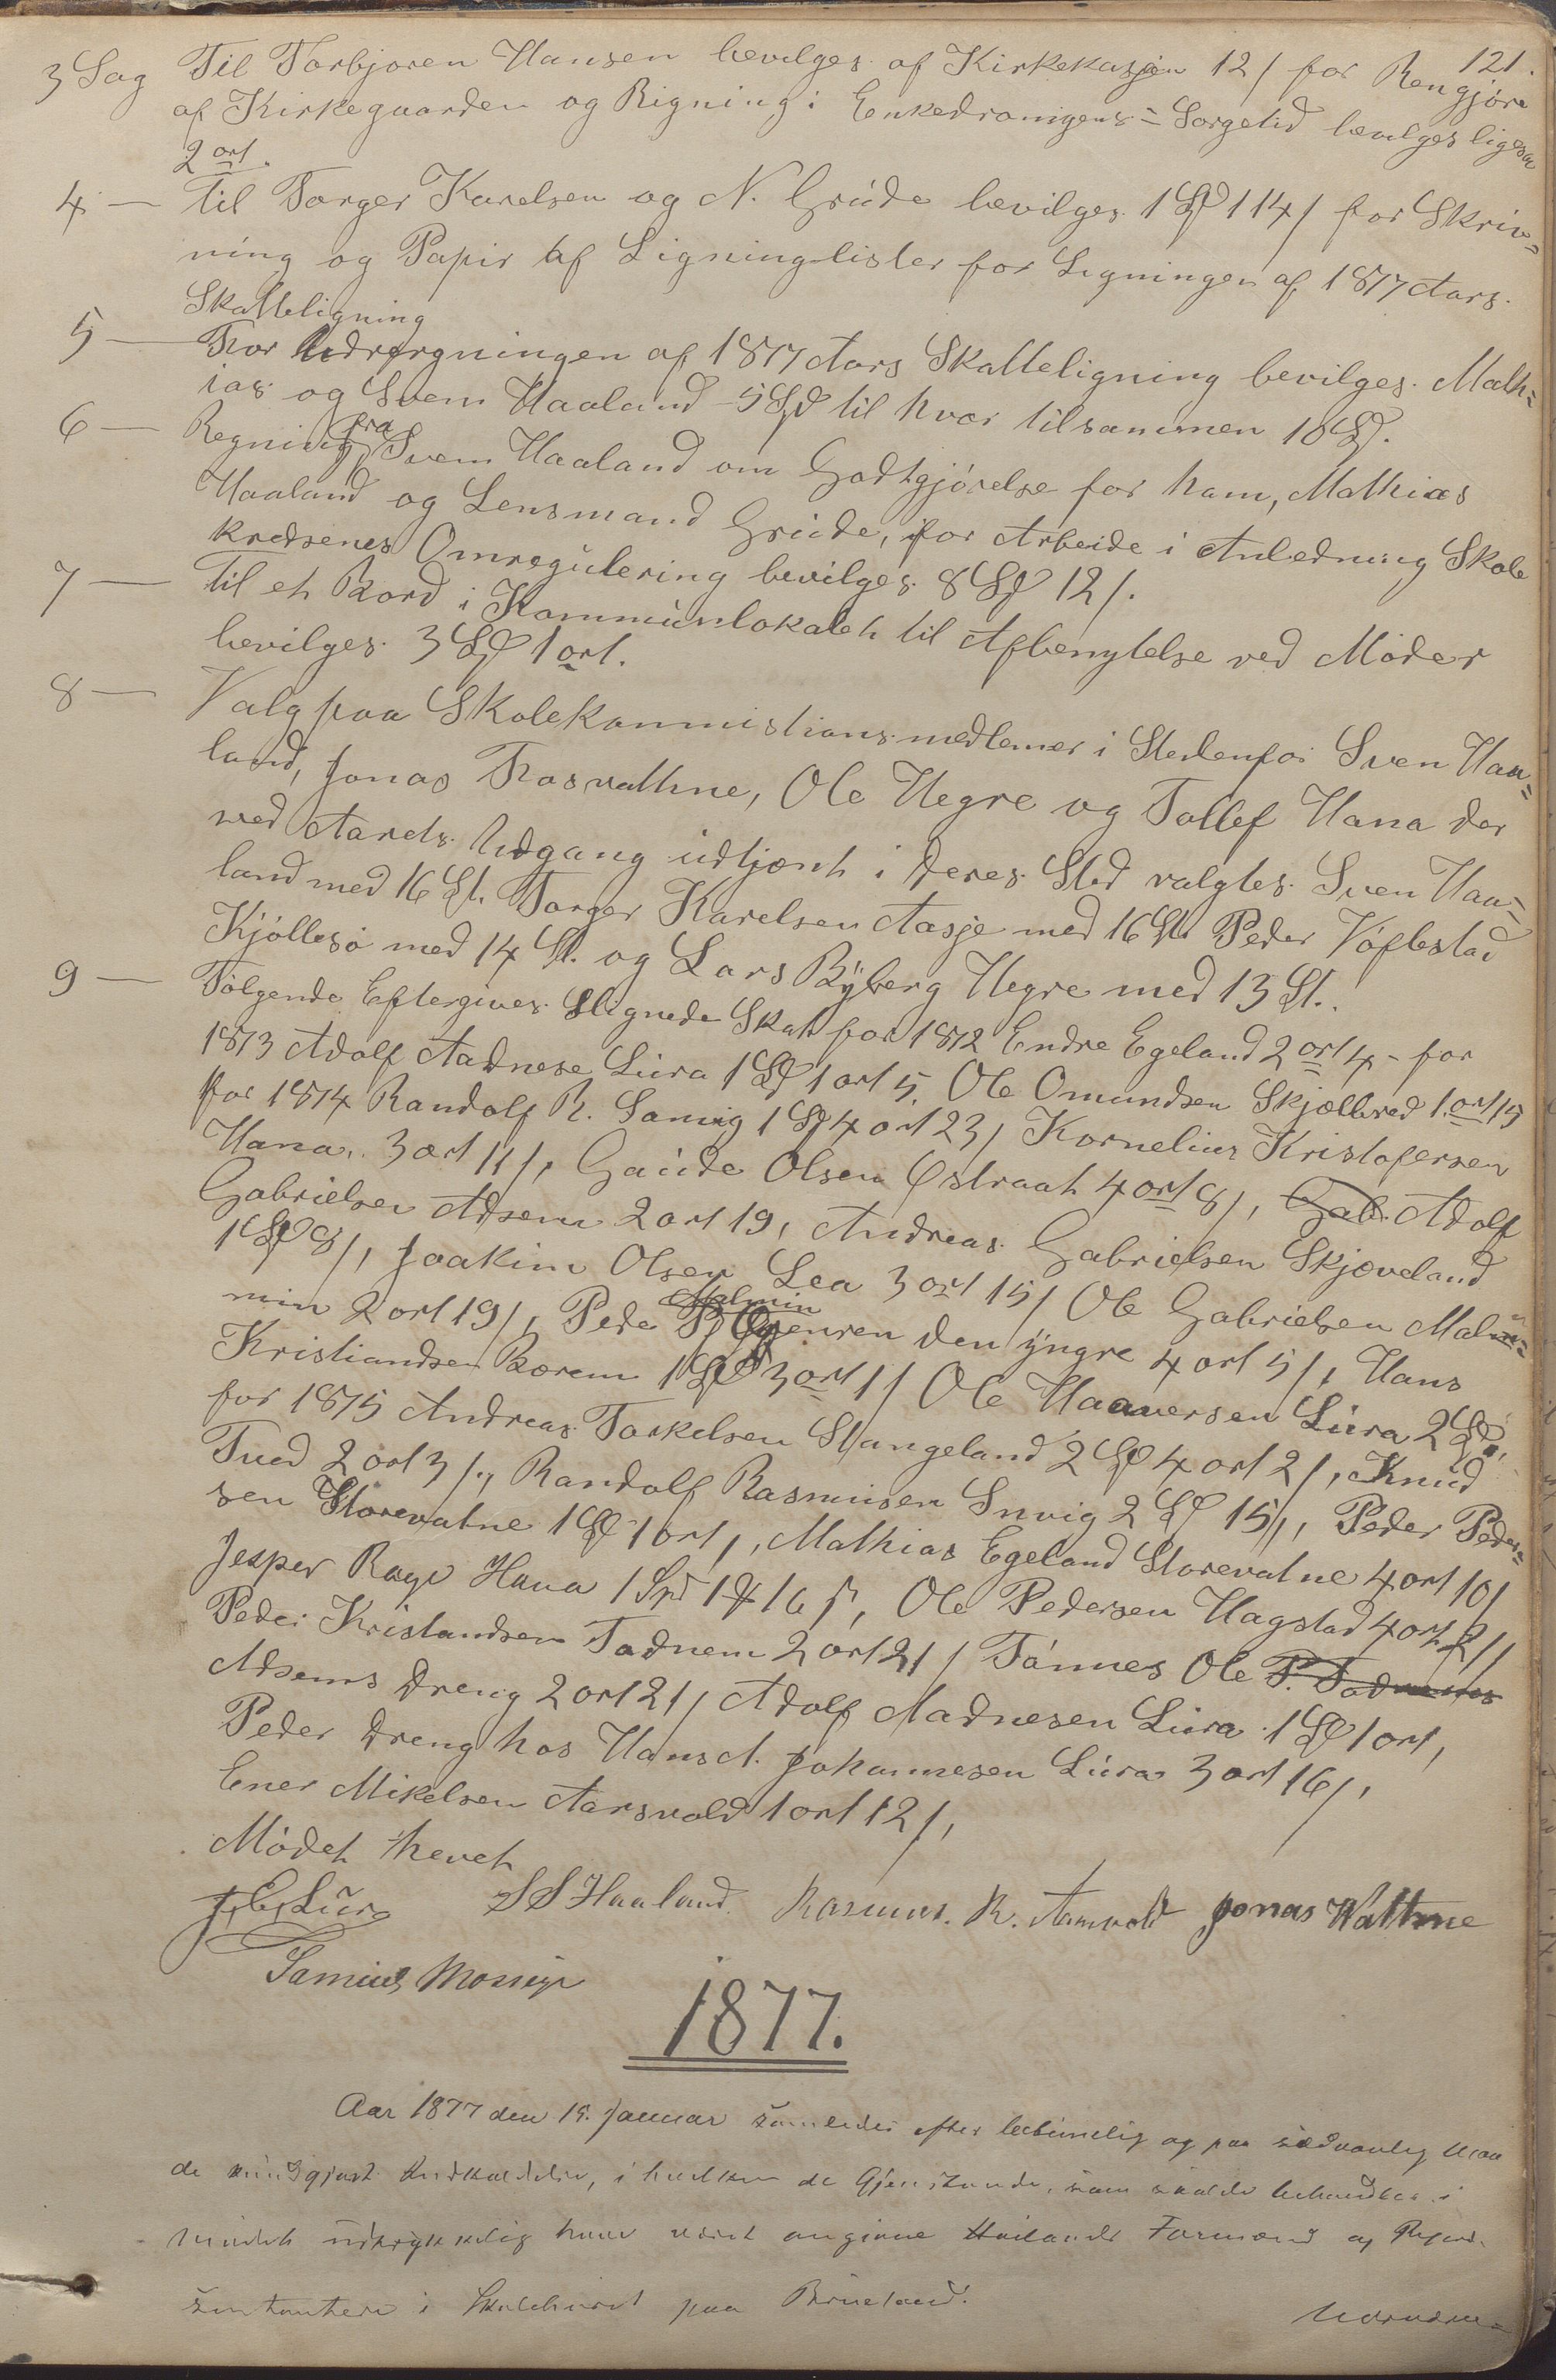 121.
3 Sag Til Torbjoren Hansen bevilges af Kirkekassen 12 / for Rengjøre
af Kirkegaarden og Rigning i Enkedronigens= Sorgetid bevilges ligesa
2 ort.
4 — Til Torger Karelsen og N. Gríide bevilges 1 Spd 114 / for Skriv=
ning og Papir af Ligninglister for Ligningen af 1877 Aars.
Skatteligning
5 — For Udregningen af 1877 Aars Skatteligning bevilges Math=
ias og Svem Haaland 5 Spd til hver tilsammen 10 Spd.
6 — Regning fra Svem Haaland om Godtgjörelse for ham, Mathias
Haaland og Lensmand Grude, for Arbeide i Anledning Skole
kredsenes Omregulering bevilges 8 Spd 12 /.
7 — Til et Bord i Kommunlokalet til Afbenytelse ved Möder
bevilges 3 Spd 1 ort.
8 — Valg paa Skolekommistions medlemer i Stedenfor Sven Haa=
land, Jonas Fosvathne, Ole Hegre og Tollef Hana der
ved Aarets Udgang udtjent i deres Sted valgtes Sven Haa=
land med 16 St. Torger Karelsen Aasje med 16 St. Peder Vöflestad
Kjöllesö med 14 St. og Lars Byberg Hegre med 13 St.
9 — Fölgende Eftergives Ilignede Skat for 1872 Endre Egeland 2 ort 4 - for
1873 Adolf Aadnese Lura 1 Spd 1 ort 5. Ole Omundsen Skjælbred 1. ort 19
for 1874 Randolf R. Somig 1 Spd 4 ort 23 / Kornelius Kristofersen
Hana. 3 ort 11 /, Gaude Olsen Østraat 4 ort 8 /, Gab. Adolf
Gabrielsen Adsem 2 ort 19, Andreas Gabrielsen Skjæveland
1 Spd 8 /, Joakim Olsen Lea 3 ort 15 / Ole Gabrielsen Malm=
min 2 ort 19 /, Peder P. Malmin den yngre 4 ort 5 /, Hans
Kristiandsen Bærem 1 Spd 3 ort 1 / Ole Haaversen Lura 2 Spd,
for 1875 Andreas Torkelsen Stangeland 2 Spd 4 ort 2 /, Knud
Tued 2 ort 3 /, Randolf Rasmusen Snvig 2 Spd 15 /, Peder Peder=
sen Storevatne 1 Spd 1 ort /, Mathias Egeland Storevatne 4 ort 10 /
Jesper Rage Hana 1 Spd 1 # 16 ß, Ole Pedersen Hagstad 4 ort 21 /
Peder Kristiandsen Tadnem 2 ort 21 / Tönnes Ole P. Tadnems
Adsems Dreng 2 ort 21 / Adolf Aadnesen Lura 1 Spd 1 ort,
Peder Dreng hos Hans A. Johannesen Lura 3 ort 16 /,
Ener Mikelsen Aarsvold 1 ort 12 /,
Mödet hevet
J. E. Lura S S Haaland. Rasmus. R. Aarsvold Jonas Wathne
Samuel Mossige
1877.
Aar 1877 den 15. Januar samledes efter betimelig og paa sædvanlig Maa
de kundgjort Indkaldelse, i hvilken de Gjenstande, som skulde behandles i
Mödet udtrykkelig have været angivne Höilands Formænd og Repræ-
sentantere i Skolehuset paa Brueland.